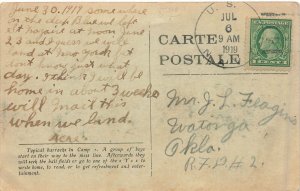 June 30. 1919 somewhere
on the deep Blue we left
at noon June
23 and I guess we will
land at New York I
don't know just what
day. I think I will be
home in about 3 weeks
will mail this
when we land.
Typical barracks in Camp. A group of boys
start on their way to the mess line. Afterwards they
will seek the ball fields or go to one of the Y's to
write home, to read, or to get refreshment and enter-
tainment.
U. S.
JUL
6
9 AM
1919
N.
CARTE
POSTALE
Mr. J. L.
Watonga
Okla.
R.F.D. # 2.